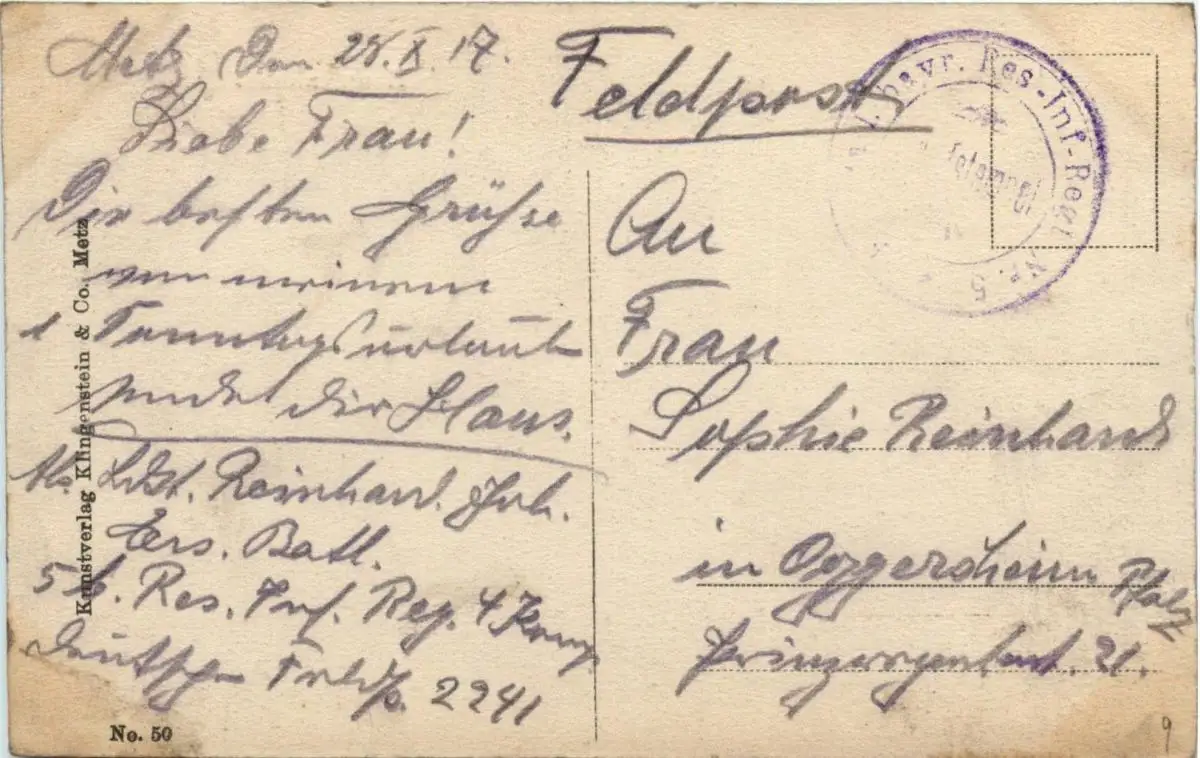 Metz Den 28. X. 17.
Liebe Frau!
Die besten Grüße
von meinem
1 Sonntagsurlaub
sendet dir Hans.
Abs. Ldst. Reinhard. Joh.
Ers. Batl.
5 b. Res. Inf. Reg. 4 Komp
Deutsche Feldp. 2241
Kunstverlag Klingenstein & Co., Metz
No. 50
Feldpost
bayr. Res.-Inf.-Regt. Nr. 5
An
Frau
Sophie Reinhard
in Oggersheim Pfalz
Prinzregentenst. 21.
9